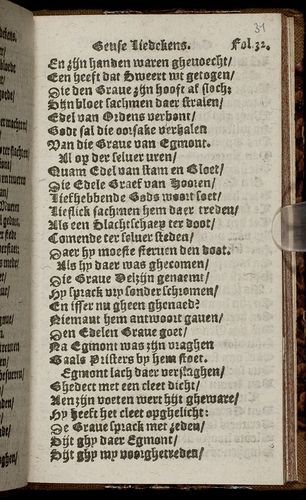 31
Geuse Liedekens. Fol.32.
En zijn handen waren ghewoecht/
Een heeft dat Sweert wt getogen/
Die den Graue zijn hooft af sloch:
Sijn bloet sachmen daer stralen/
Edel van Ordens verbont/
Godt sal die oorsake verhalen
Van die Graue van Egmont.
Al op der seluer uren/
Quam Edel van stam en Bloet/
Die Edele Graef van Hooren/
Liefhebbende Gods woort soet/
Lieflick sachmen hem daer treden/
Als een Slachtschaep ter doot/
Comende ter seluer steden/
Daer hy moeste steruen den doot.
Als hy daer was ghecomen/
Die Graue Delzijn genaemt/
Hy sprack vry sonder schromen/
En isser nu gheen ghenaed?
Niemant hem antwoort gauen/
Den Edelen Graue goet/
Na Egmont was zijn vraghen
Gaals Pristers by hem stoet.
Egmont lach daer verslaghen/
Ghedect met een cleet dicht/
Aen zijn voeten wert hijt ghewaere/
Hy heeft het cleet opghelicht:
De Graue sprack met zeden/
Sijt ghy daer Egmont/
Sijt ghy my voorghetreden/